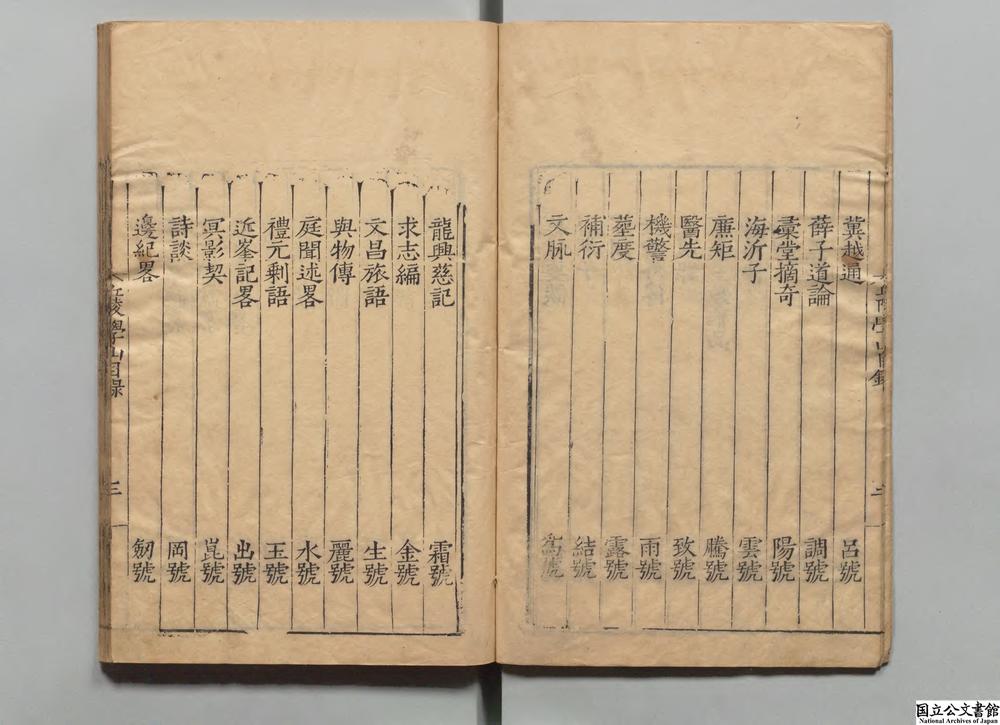 丘陵學山目錄 二
冀越通 呂號
薛子道論 調號
彚堂摘奇 陽號
海沂子 雲號
廉矩 騰號
醫先 致號
機警 雨號
葬度 露號
補衍 結號
文脉 為號
龍興慈記 霜號
求志編 金號
文昌旅語 生號
與物傳 麗號
庭聞述畧 水號
禮元剩語 玉號
近峯記畧 出號
冥影契 崑號
詩談 岡號
邊紀畧 劒號
丘陵學山目録 三
国立公文書館
National Archives of Japan